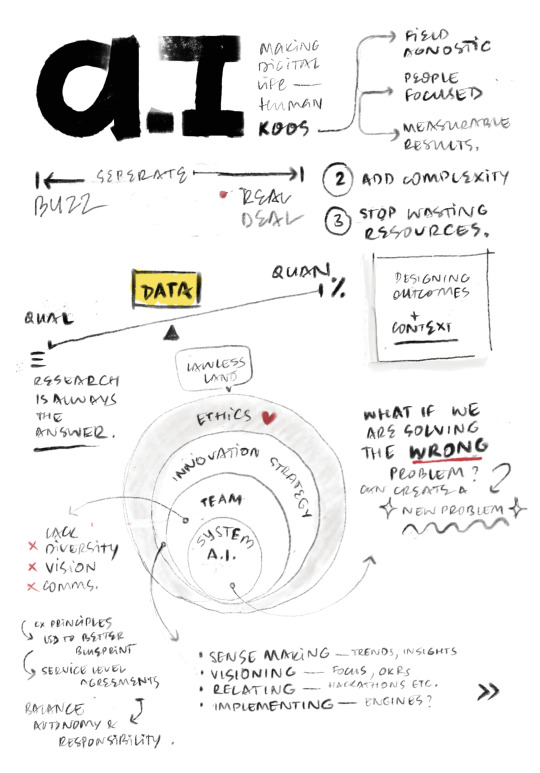 a.I
MAKING
DIGITAL
LIFE —
HUMAN
KOOS
FIELD
AGNOSTIC
PEOPLE
FOCUSED
MEASURABLE
RESULTS.
SEPERATE
BUZZ
REAL
DEAL
2 ADD COMPLEXITY
3 STOP WASTING
RESOURCES.
DATA
QUAL
QUAN.
%
RESEARCH
IS ALWAYS
THE
ANSWER.
DESIGNING
OUTCOMES
+
CONTEXT
LAWLESS
LAND
ETHICS
INNOVATION STRATEGY
TEAM
SYSTEM
A.I.
WHAT IF WE
ARE SOLVING
THE WRONG
PROBLEM?
CAN CREATE A
NEW PROBLEM
LACK
× DIVERSITY
× VISION
× COMMS.
CX PRINCIPLES
LED TO BETTER
BLUEPRINT
SERVICE LEVEL
AGREEMENTS
BALANCE
AUTONOMY &
RESPONSIBILITY.
• SENSE MAKING — TRENDS, INSIGHTS
• VISIONING — FOCUS, OKRs
• RELATING — HACKATHONS ETC.
• IMPLEMENTING — ENGINES?
»